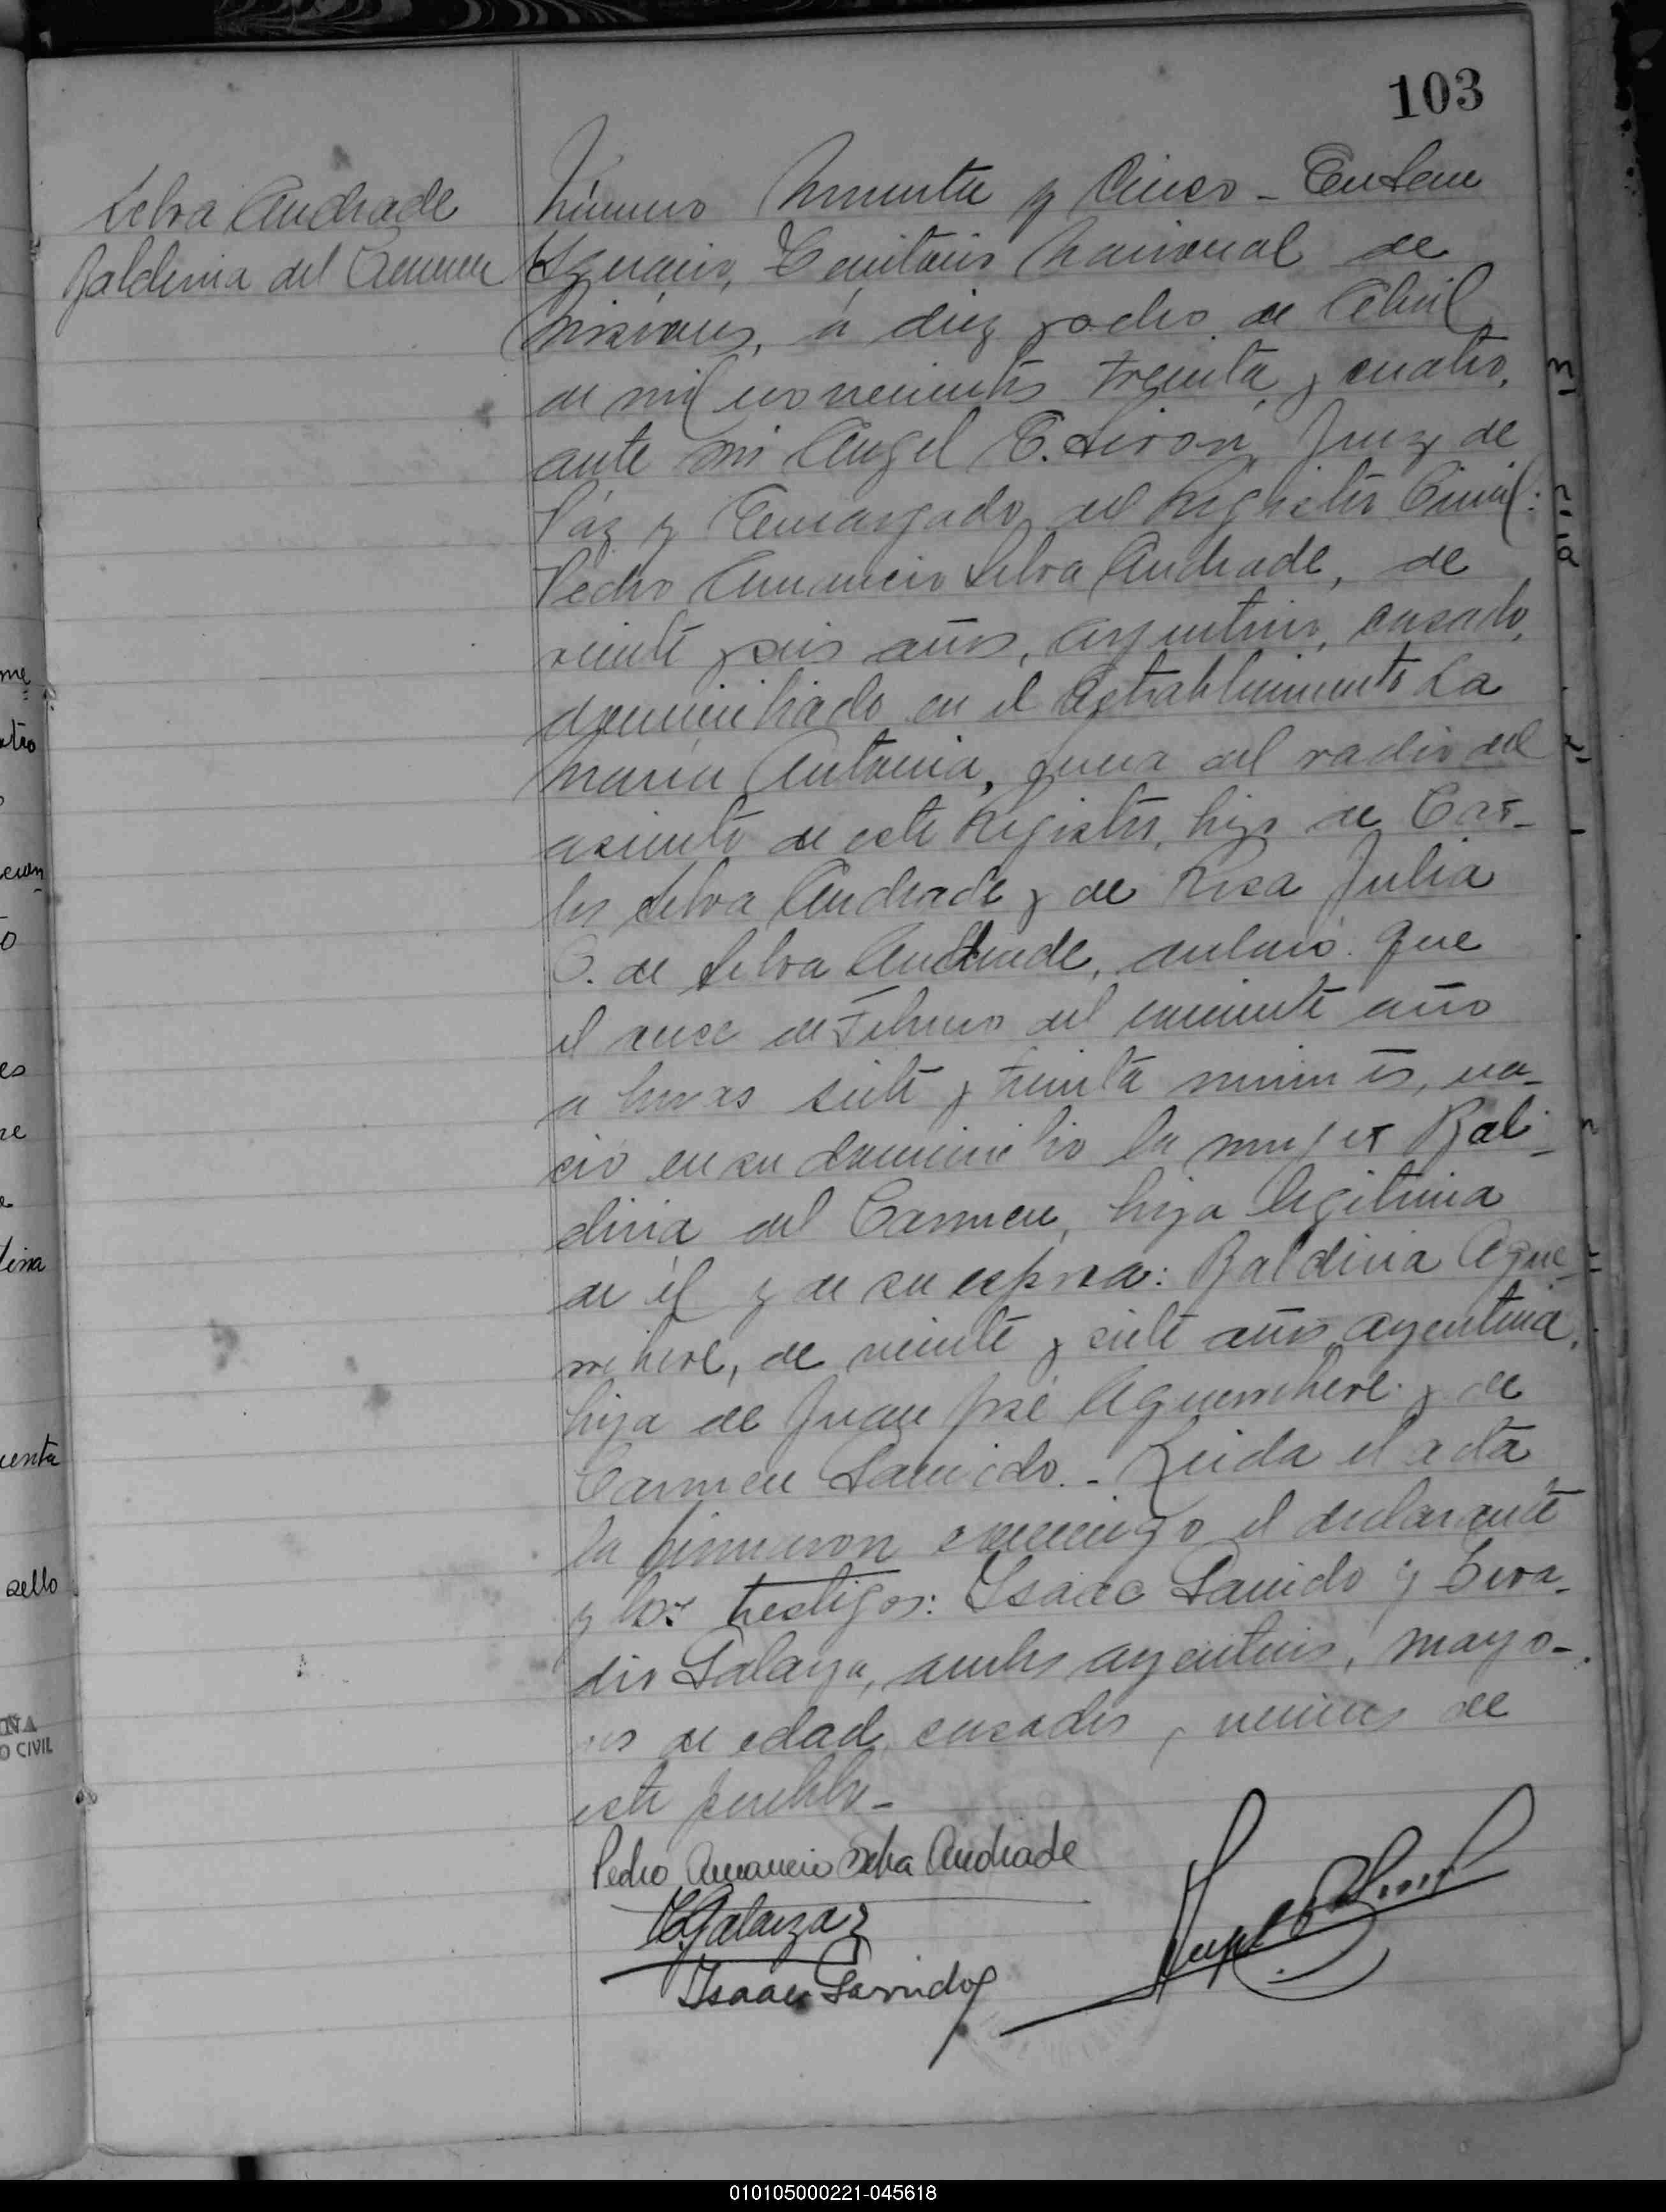 103
Selva Andrade
Baldivia del Carmen
Número Noventa y Cinco - En San
Ignacio, Territorio Nacional de
Misiones, á diez y ocho de Abril
de mil novecientos treinta y cuatro,
ante mi Angel E. Liron Juez de
Páz y Encargado del Registro Civil:
Pedro Amancio Selva Andrade, de
veinte y seis años, argentino, casado,
domiciliado en el Establecimiento La
María Antonia, fuera del radio del
asiento de este Registro, hijo de Car-
los Selva Andrade y de Rosa Julia
C. de Selva Andrade, declaró: Que
el once de Febrero del corriente año
a horas siete y treinta minutos, na-
ció en su domicilio la mujer Bal-
divia del Carmen, hija legítima
de él y de su esposa: Baldivia Ague-
rrebere, de veinte y siete años, argentina,
hija de Juan José Aguerrebere y de
Carmen Garrido. - Leida el acta
la firmaron conmigo el declarante
y los testigos: Isaac Garrido y
Galarza, ambos argentinos, mayo-
res de edad, casados, vecinos de
este pueblo -
Pedro Amancio Selva Andrade
Galarza
Isaac Garrido
me
atro
es
re
tina
uenta
sello
NA
O CIVIL
010105000221-045618